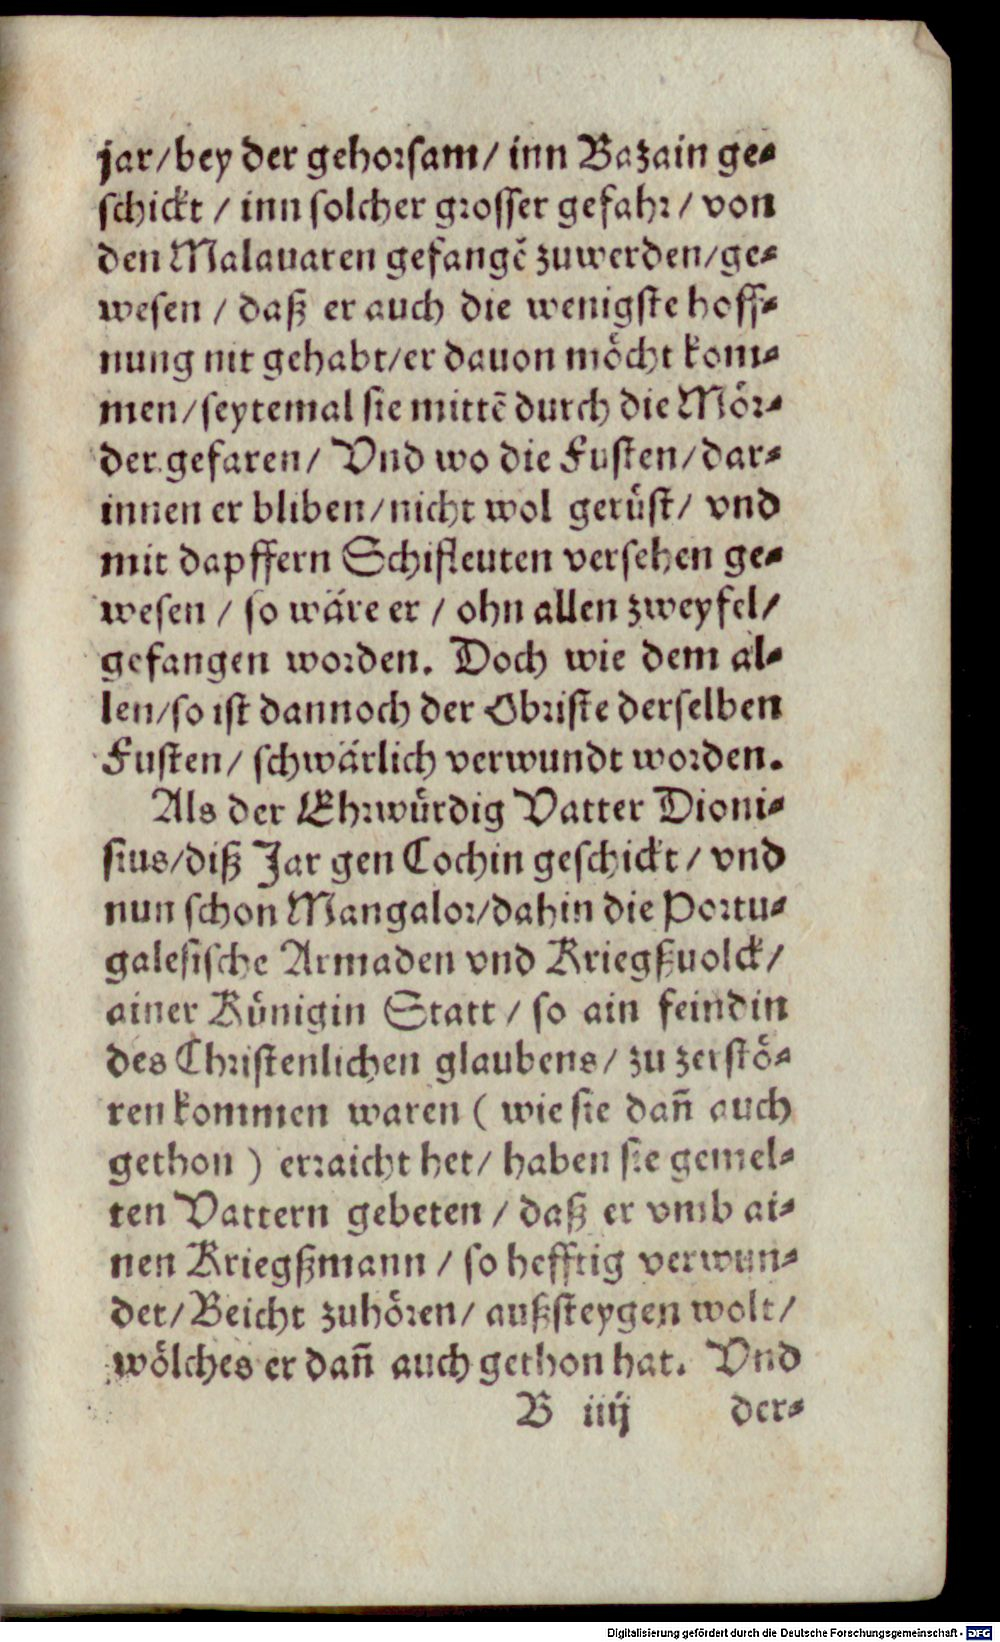 jar/bey der gehorsam/ inn Bazain ge-
schickt / inn solcher grosser gefahr / von
den Malauaren gefangẽ zuwerden/ge-
wesen / daß er auch die wenigste hoff-
nung nit gehabt/er dauon möcht kom-
men/seytemal sie mittẽ durch die Mör-
der gefaren/ Vnd wo die Fusten/dar-
innen er bliben/nicht wol gerüst/ vnd
mit dapffern Schifleuten versehen ge-
wesen / so wäre er / ohn allen zweyfel/
gefangen worden. Doch wie dem al-
len/so ist dannoch der Obriste derselben
Fusten/ schwärlich verwundt worden.
Als der Ehrwürdig Vatter Dioni-
sius/diß Jar gen Cochin geschickt / vnd
nun schon Mangalor/dahin die Portu-
galesische Armaden vnd Kriegßuolck/
ainer Künigin Statt / so ain feindin
des Christenlichen glaubens/ zu zerstö-
ren kommen waren ( wie sie dañ auch
gethon ) erraicht het/ haben sie gemel-
ten Vattern gebeten / daß er vmb ai-
nen Kriegßmann / so hefftig verwun-
det/Beicht zuhören/ außsteygen wolt/
wölches er dañ auch gethon hat. Vnd
B iiij der-
Digitalisierung gefördert durch die Deutsche Forschungsgemeinschaft - DFG